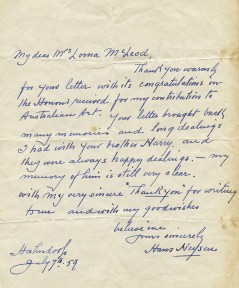 My dear Mrs Lorna McLeod,
Thank you warmly
for your letter with its congratulations on
the Honour received for my contribution to
Australian Art. Your letter brought back
many memories and long dealings
I had with your brother Harry, and
they were always happy dealings — my
memory of him is still very clear.
with my very sincere Thank you for writing
to me and with my good wishes
believe me
Yours sincerely
Hans Heysen
Hahndorf
July 7th. 59